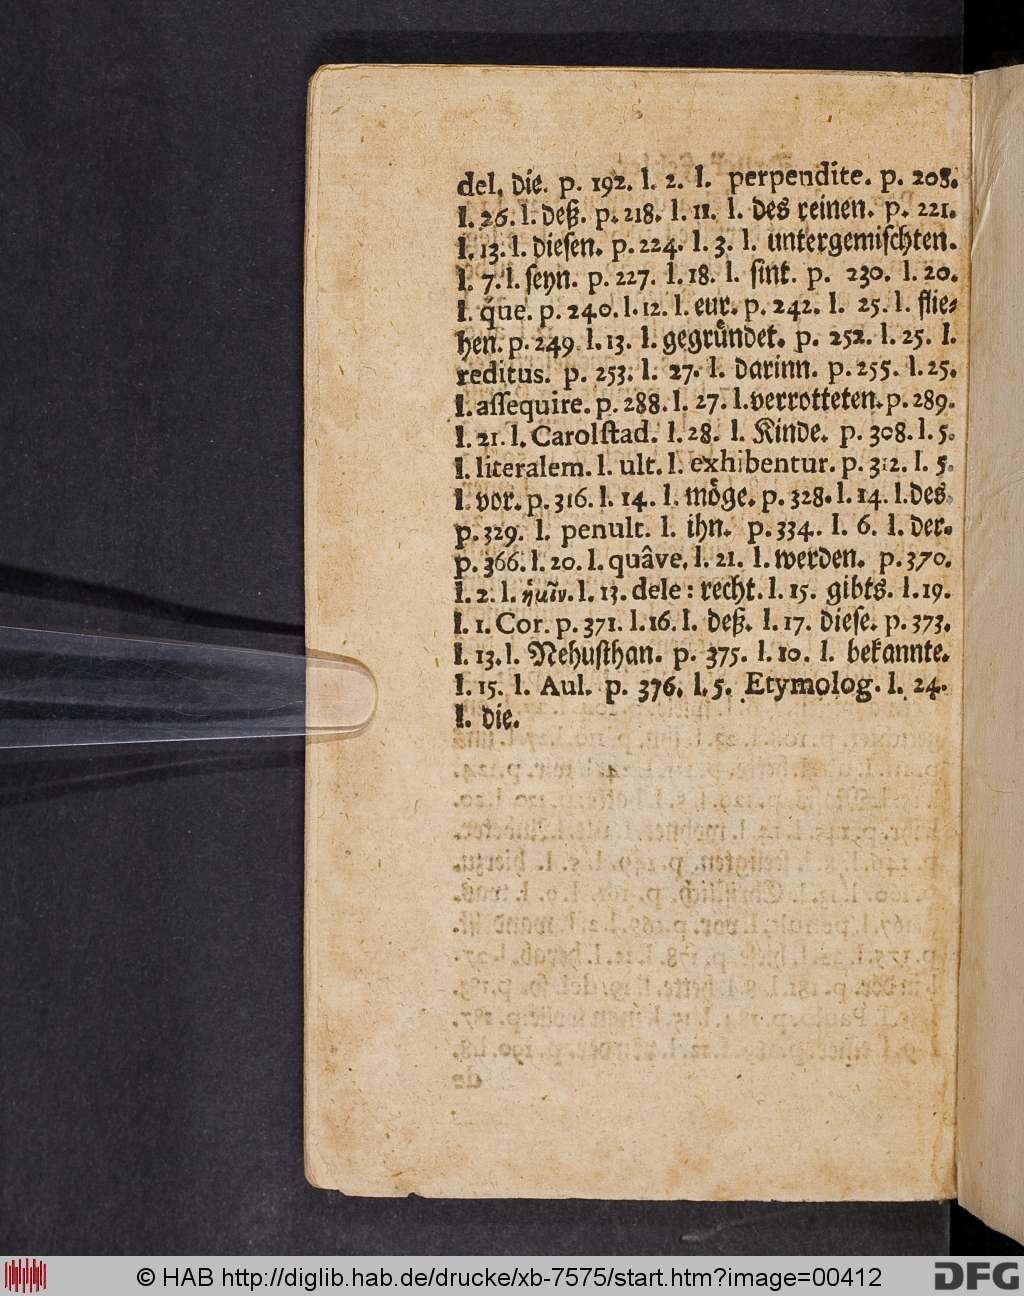 del. die. p. 192. l. 2. l. perpendite. p. 208.
l. 26. l. deß. p. 218. l. 11. l. des reinen. p. 221.
l. 13. l. diesen. p. 224. l. 3. l. untergemischten.
l. 7. l. seyn. p. 227. l. 18. l. sint. p. 230. l. 20.
l. que. p. 240. l. 12. l. eur. p. 242. l. 25. l. flie-
hen. p. 249. l. 13. l. gegründet. p. 252. l. 25. l.
reditus. p. 253. l. 27. l. darinn. p. 255. l. 25.
l. assequire. p. 288. l. 27. l. verrotteten. p. 289.
l. 21. l. Carolstad. l. 28. l. Kinde. p. 308. l. 5.
l. literalem. l. ult. l. exhibentur. p. 312. l. 5.
l. vor. p. 316. l. 14. l. möge. p. 328. l. 14. l. des.
p. 329. l. penult. l. ihn. p. 334. l. 6. l. der.
p. 366. l. 20. l. quâve. l. 21. l. werden. p. 370.
l. 2. l. ἡμῖν. l. 13. dele: recht. l. 15. gibts. l. 19.
l. 1. Cor. p. 371. l. 16. l. deß. l. 17. diese. p. 373.
l. 13. l. Nehusthan. p. 375. l. 10. l. bekannte.
l. 15. l. Aul. p. 376. l. 5. Etymolog. l. 24.
l. die.
© HAB http://diglib.hab.de/drucke/xb-7575/start.htm?image=00412
DFG